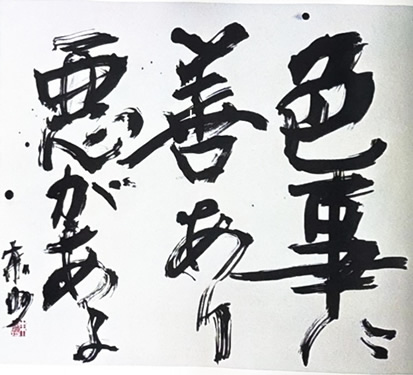 色事に
善あり
悪があるよ